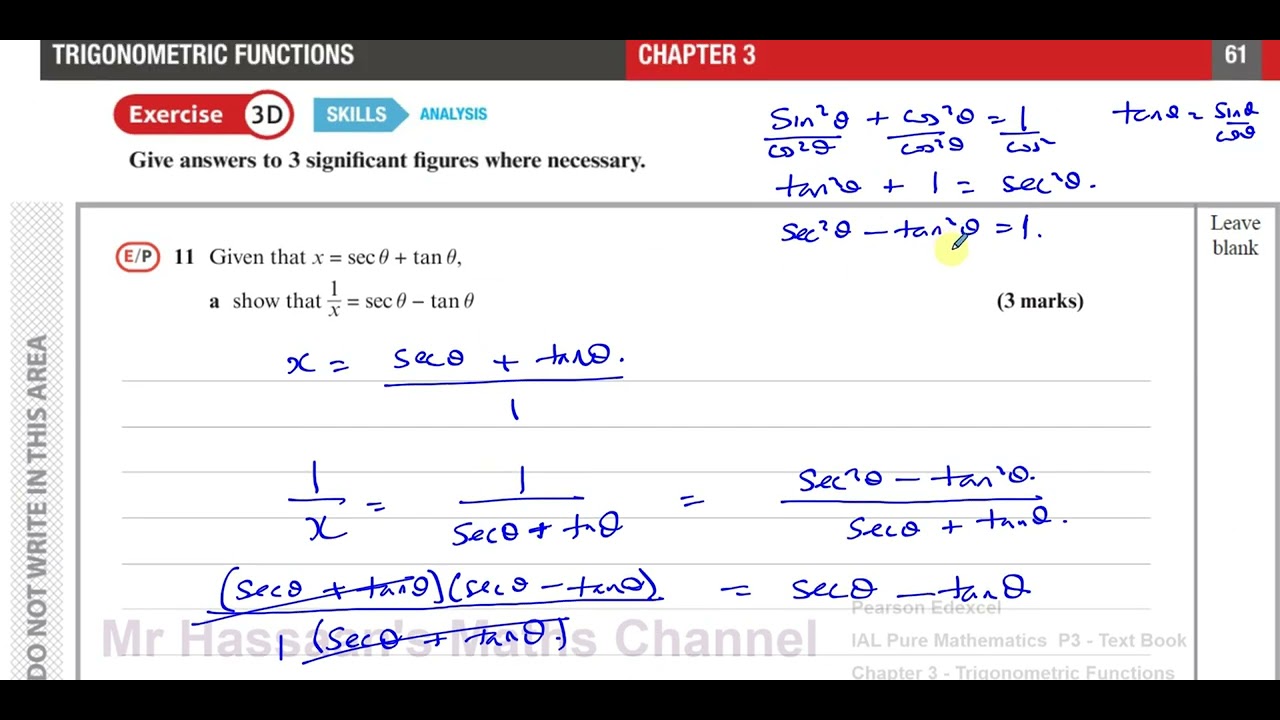 TRIGONOMETRIC FUNCTIONS CHAPTER 3 61
Exercise 3D SKILLS ANALYSIS
Give answers to 3 significant figures where necessary.
sin²θ/cos²θ + cos²θ/cos²θ = 1/cos² tanθ = sinθ/cosθ
tan²θ + 1 = sec²θ.
sec²θ - tan²θ = 1.
Leave
blank
E/P 11 Given that x = sec θ + tan θ,
a show that 1/x = sec θ − tan θ (3 marks)
x = (secθ + tanθ.)/1
1/x = 1/(secθ + tanθ) = (sec²θ - tan²θ.)/(secθ + tanθ.)
(secθ + tanθ)(secθ - tanθ)/1(secθ + tanθ.) = secθ - tanθ
DO NOT WRITE IN THIS AREA
Mr Hassaan's Maths Channel
Pearson Edexcel
IAL Pure Mathematics P3 - Text Book
Chapter 3 - Trigonometric Functions